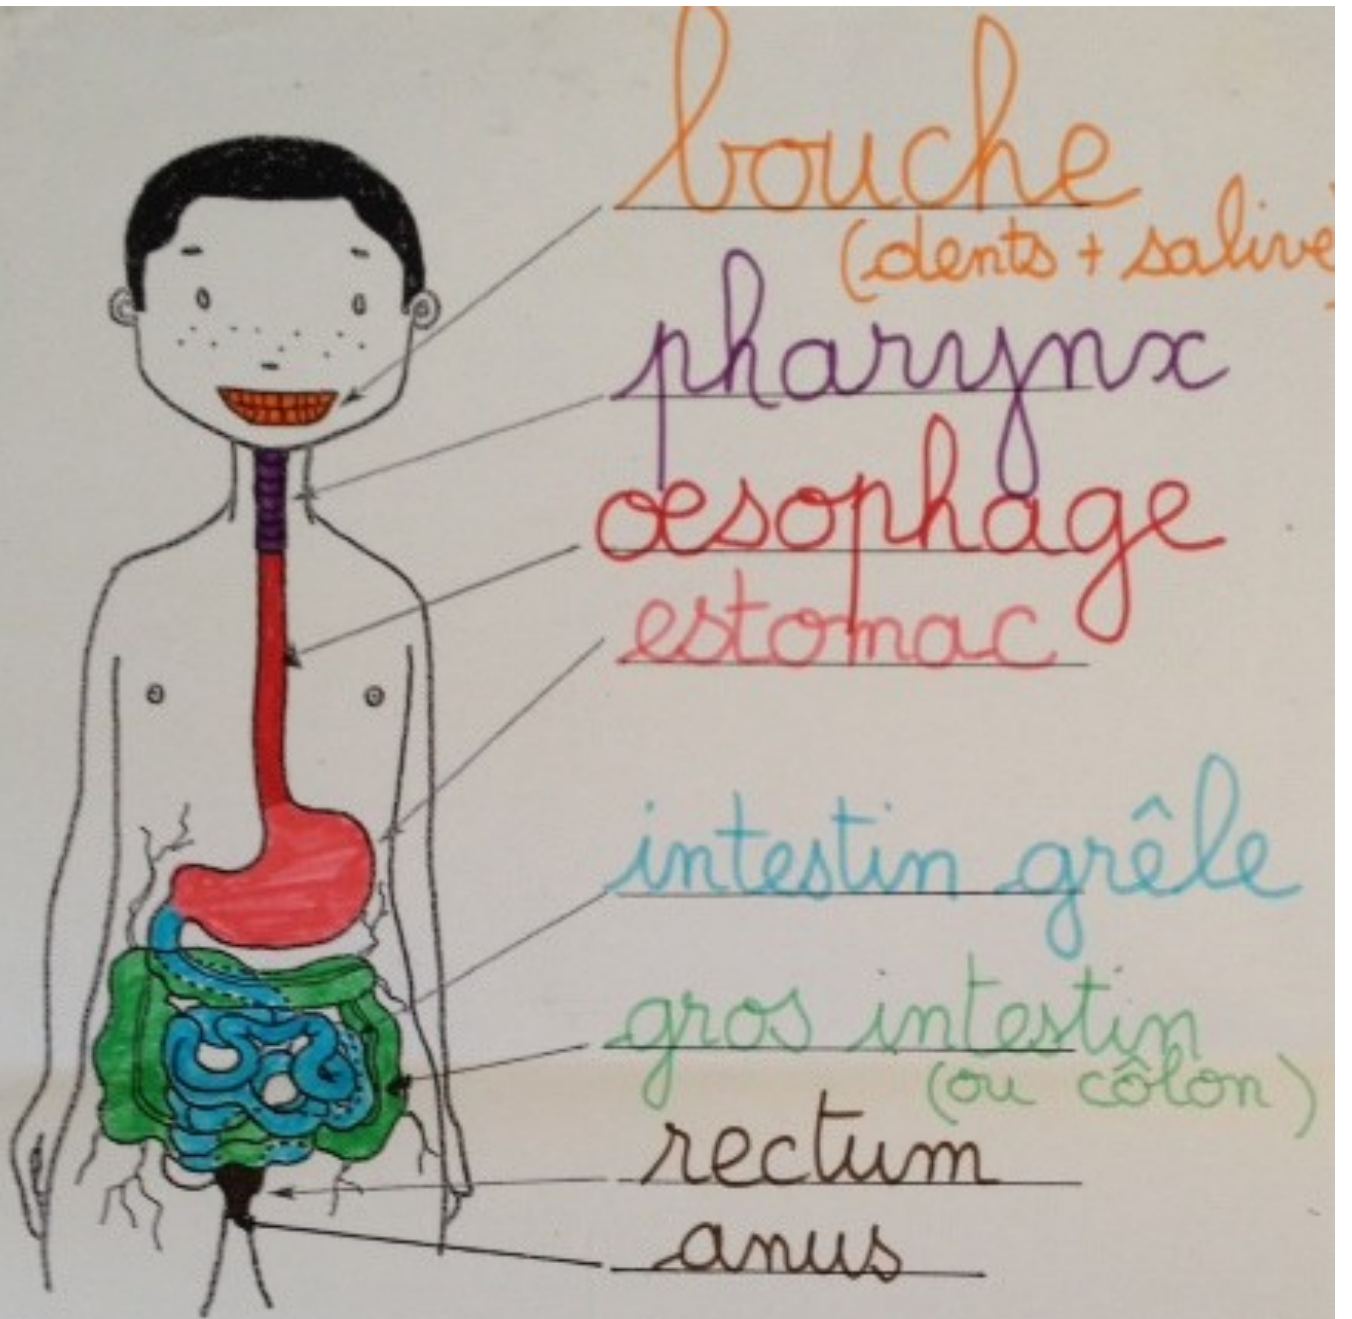 bouche
(dents + salive)
pharynx
œsophage
estomac
intestin grêle
gros intestin
(ou côlon)
rectum
anus